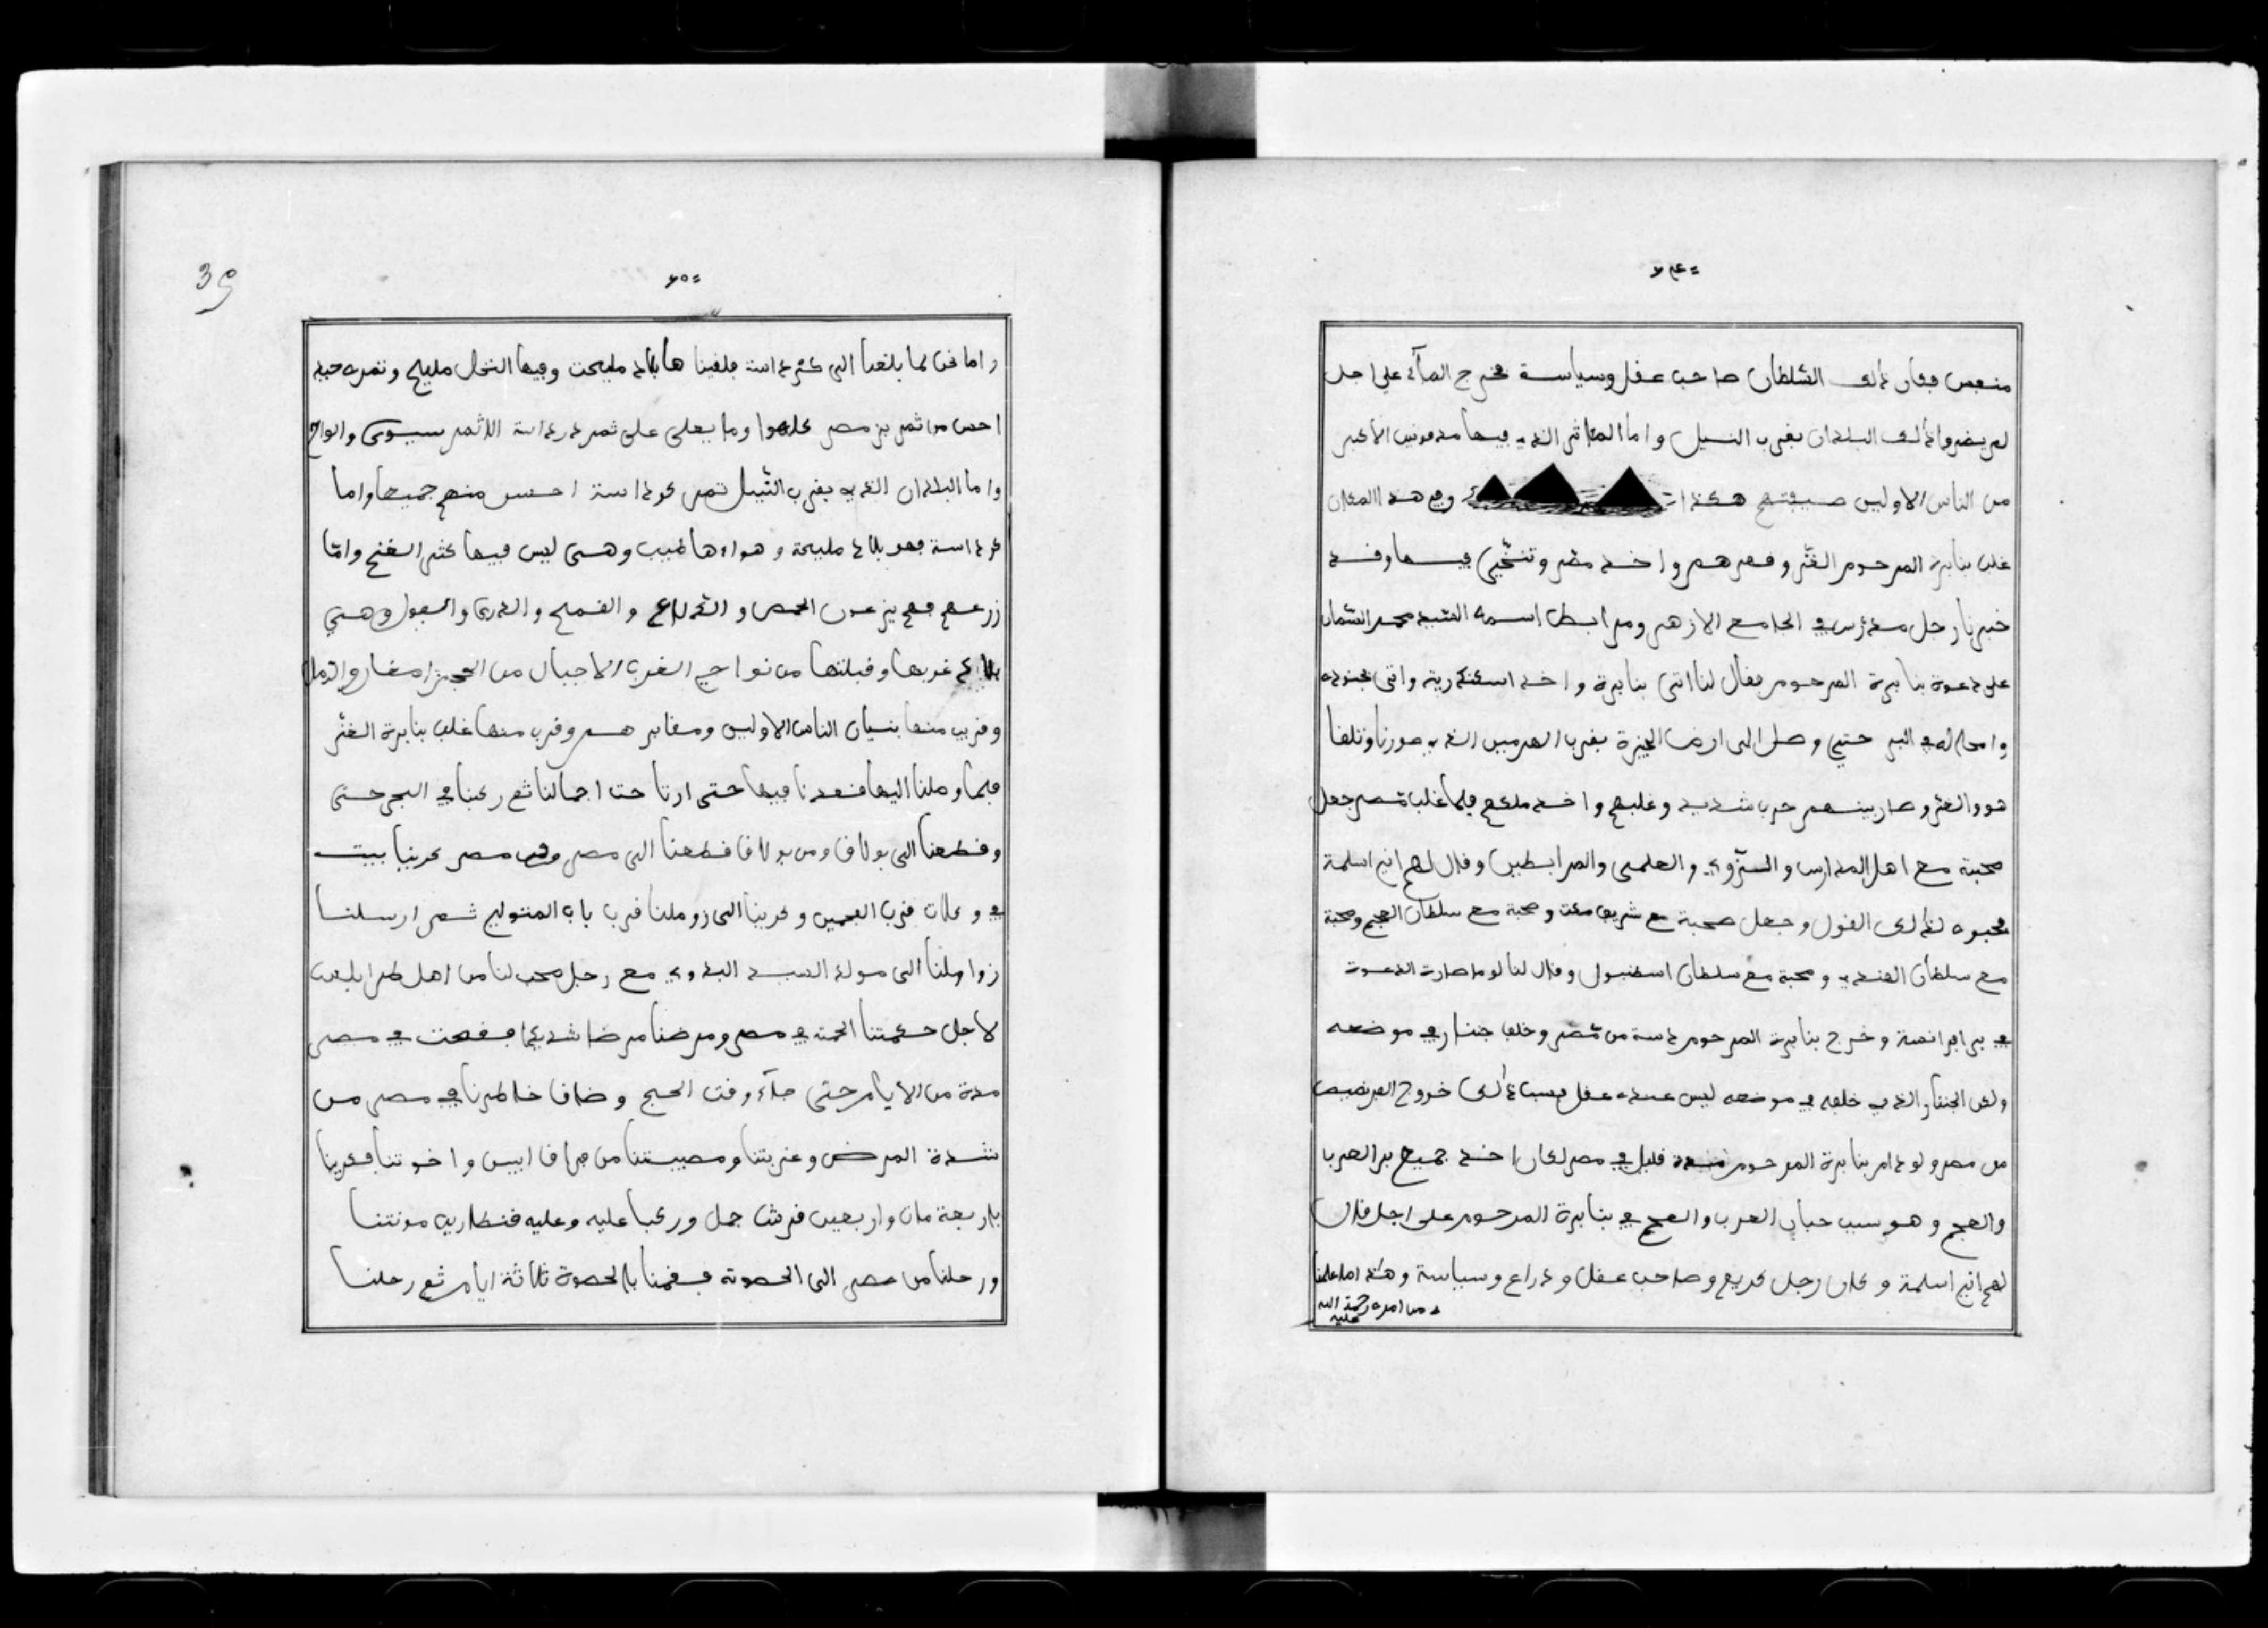 ٧٤
منعس فكان ذالك السّلطان صاحب عفل وسياسة فخرج المآء على اجل
لم يضروا ذالك البلدان بفرب النيل واما الذي فيها مدفونين الاكبر
من الناس الاولين صيفتهم هكذا وفي هذا المكان
غلب بنابرة المرحوم الغّز وفهرهم واخذ مصر وفد
خبرنا رجل مدرّس في الجامع الازهر ومرابط اسمه السيد محمد
على دعوة بنابرة المرحوم ففال لنا اتى بنابرة واخذ اسكندرية واتى بجنوده
وامحاله في البر حتى وصل الى ارض الجيزة بفرب الهرمين الذي صورنا وتلفا
هو والغز وصار بينهم حرب شديد وغلبهم واخذ ملكهم فلما غلب مصر جعل
صحبة مع اهل المدارس والسزّوي والعلمى والمرابطين وفال لهم اني اسلمة
فحبوه لذالك الفول وجعل صحبة مع شريف مكت وصحبة مع سلطان العجم وصحبة
مع سلطان الهندي وصحبة مع سلطان اسطنبول وفال لنا لو ما صارت الدعوت
في بر افرانصة وخرج بنابرة المرحوم من مصر وخلف جننار في موضعه
ولكن الجننار الذي خلفه في موضعه ليس عنده عفل فسبب ذالك خروج الفرنصيص
من مصر ولو دام بنابرة المرحوم مدة فليل في مصر لكان اخذ جميع بر العرب
والعجم وهو سبب حبان العرب والعجم في بنابرة المرحوم على اجل فال
لهم اني اسلمة وكان رجل كريم وصاحب عفل وذراع وسياسة وهذا ما علمنا
من امره رحمة الله
عليه
39
٧٥
واما نحن لما بلغنا الى كرداسة فلفينا ها بلاد مليحت وفيها النخل مليح وتمره حبه
احسن من ثمر بر مصر كلهوا وما يعلى على ثمر كرداسة الا ثمر سيوى والواح
واما البلدان الذي بفرب النّيل تمر كرداسة احسن منهم جميعا واما
كرداسة فهو بلاد مليحة وهواءها طيب وهى ليس فيها كثر الغنج وامّا
زرعهم فهم يزرعون الحمص و والفمح والذرى والفول وهي
بلاد غربها وفبلتها من نواحي الغرب الاجبال من الحجر والرمل
وفريب منها بنيان الناس الاولين ومفابر هم وفرب منها غلب بنابرة الغّز
فلما وصلنا اليها ففعدنا فيها حتى ارتاحت اجمالنا ثم ركبنا في البحر حتى
وفطعنا الى بولاف ومن بولاف فطعنا الى مصر وفي مصر كرينا بيت
في وكلات فرب الفحمين وكرينا الى زوملنا فرب باب المتولي ثم ارسلنا
زواملنا الى مولد السيد البدوي مع رجل محب لنا من اهل طرابلس
لاجل حكمتنا الحمة في مصر ومرضنا مرضا شديدا ففعدت في مصر
مدة من الايام حتى جآء وفت الحج وضاف خاطرنا في مصر من
شدة المرض وغربتنا ومصيبتنا من فراف ابيى واخوتنا فكرينا
باربعة مات واربعين فرش جمل وركبنا عليه وعليه فنطارين مونتنا
ورحلنا من مصر الى الحصوة ففمنا بالحصوة ثلاثة ايام ثم رحلنا